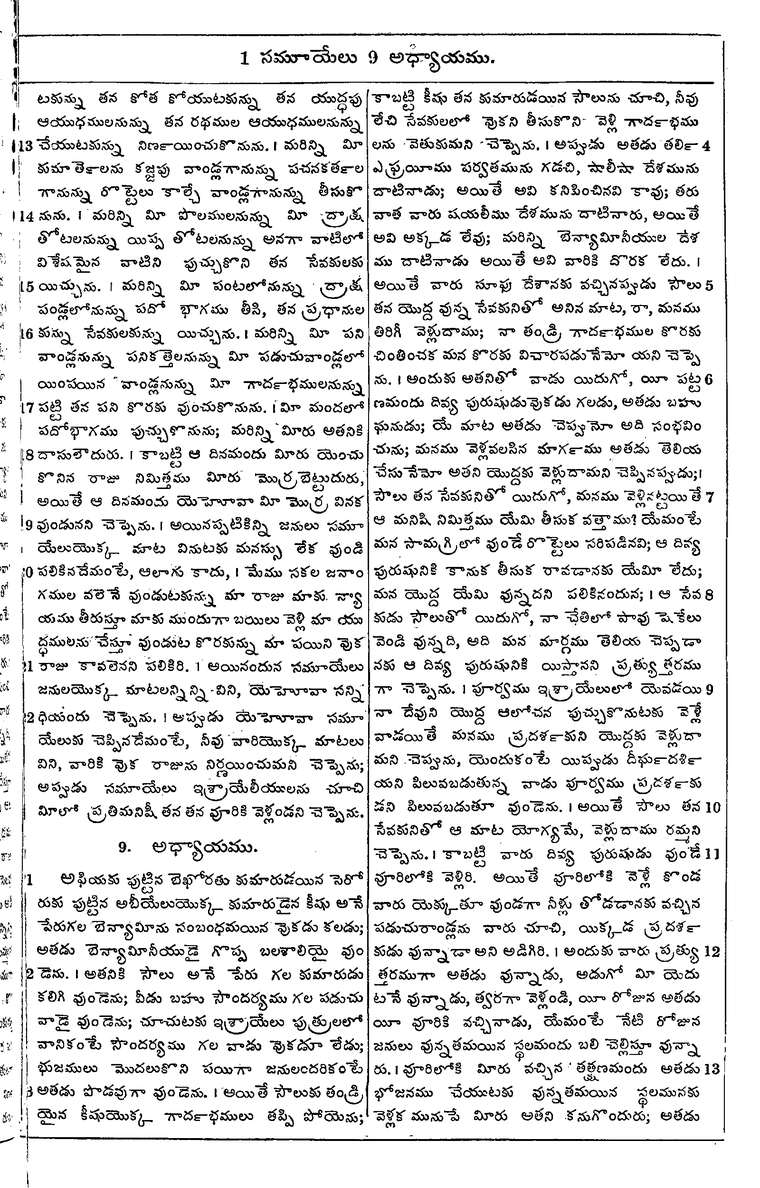 1 సమూయేలు 9 అధ్యాయము.
టకున్ను తన కోత కోయుటకున్ను తన యుద్ధపు
ఆయుధములనున్ను తన రథముల ఆయుధములనున్ను
13 చేయుటకున్ను నిర్ణయించుకొనును. । మరిన్ని మీ
కుమార్తెలను కజ్జపు వాండ్లగానున్ను పచనకర్తల
గానున్ను రొట్టెలు కాల్చే వాండ్లగానున్ను తీసుకొ
14 నును. । మరిన్ని మీ పొలములనున్ను మీ ద్రాక్ష
తోటలనున్ను యిప్ప తోటలనున్ను అనగా వాటిలో
విశేషమైన వాటిని పుచ్చుకొని తన సేవకులకు
15 యిచ్చును. । మరిన్ని మీ పంటలోనున్ను ద్రాక్ష
పండ్లలోనున్ను పదో భాగము తీసి, తన ప్రధానుల
16 కున్ను సేవకులకున్ను యిచ్చును. । మరిన్ని మీ పని
వాండ్లనున్ను పనికత్తెలనున్ను మీ పడుచువాండ్లలో
యింపయిన వాండ్లనున్ను మీ గార్దభములనున్ను
17 పట్టి తన పని కొరకు వుంచుకొనును. । మీ మందలో
పదోభాగము పుచ్చుకొనును; మరిన్ని మీరు అతనికి
18 దాసులౌదురు. । కాబట్టి ఆ దినమందు మీరు యెంచు
కొనిన రాజు నిమిత్తము మీరు మొర్రబెట్టుదురు,
అయితే ఆ దినమందు యెహోవా మీ మొర్ర వినక
19 వుండునని చెప్పెను. । అయినప్పటికిన్ని జనులు సమూ
యేలుయొక్క మాట వినుటకు మనస్సు లేక వుండి
20 పలికినదేమంటే, ఆలాగు కాదు, । మేము సకల జనాం
గముల వలెనే వుండుటకున్ను మా రాజు మాకు న్యా
యము తీరుస్తూ మాకు ముందుగా బయిలు వెళ్లి మా యు
ద్ధములను చేస్తూ వుండుట కొరకున్ను మా పయిని వుక
21 రాజు కావలెనని పలికిరి. । అయినందున సమూయేలు
జనులయొక్క మాటలన్నిన్ని విని, యెహోవా సన్ని
22 ధియందు చెప్పెను. । అప్పుడు యెహోవా సమూ
యేలుకు చెప్పినదేమంటే, నీవు వారియొక్క మాటలు
విని, వారికి వుక రాజును నిర్ణయించుమని చెప్పెను;
అప్పుడు సమూయేలు ఇశ్రాయేలీయులను చూచి
మీలో ప్రతిమనిషీ తన తన వూరికి వెళ్లండని చెప్పెను.
9. అధ్యాయము.
1 అఫియకు పుట్టిన బెఖోరతు కుమారుడయిన సెరో
రుకు పుట్టిన అబీయేలుయొక్క కుమారుడైన కీషు అనే
పేరుగల బెన్యామీను సంబంధమయిన వుకడు కలడు;
అతడు బెన్యామీనీయుడై గొప్ప బలశాలియై వుం
2 డెను. । అతనికి సౌలు అనే పేరు గల కుమారుడు
కలిగి వుండెను; వీడు బహు సౌందర్యము గల పడుచు
వాడై వుండెను; చూచుటకు ఇశ్రాయేలు పుత్రులలో
వానికంటే సౌందర్యము గల వాడు వుకడూ లేడు;
భుజములు మొదలుకొని పయిగా జనులందరికంటే
3 అతడు పొడవుగా వుండెను. । అయితే సౌలుకు తండ్రి
యైన కీషుయొక్క గార్దభములు తప్పి పోయెను;
కాబట్టి కీషు తన కుమారుడయిన సౌలును చూచి, నీవు
లేచి సేవకులలో వుకని తీసుకొని వెళ్లి గార్దభము
లను వెతుకుమని చెప్పెను. । అప్పుడు అతడు తర్లి 4
ఎఫ్రయీము పర్వతమును గడచి, షాలీషా దేశమును
దాటినాడు; అయితే అవి కనిపించినవి కావు; తరు
వాత వారు షయలీము దేశమును దాటినారు, అయితే
అవి అక్కడ లేవు; మరిన్ని బెన్యామీనీయుల దేశ
ము దాటినాడు అయితే అవి వారికి దొరక లేదు. ।
అయితే వారు సూఫు దేశానకు వచ్చినప్పుడు సౌలు 5
తన యొద్ద వున్న సేవకునితో అనిన మాట, రా, మనము
తిరిగీ వెళ్లుదాము; నా తండ్రి గార్దభముల కొరకు
చింతించక మన కొరకు విచారపడునేమో యని చెప్పె
ను. । అందుకు అతనితో వాడు యిదుగో, యీ పట్ట 6
ణమందు దివ్య పురుషుడువుకడు గలడు, అతడు బహు
ఘనుడు; యే మాట అతడు చెప్పునో అది సంభవిం
చును; మనము వెళ్లవలసిన మార్గము అతడు తెలియ
చేసునేమో అతని యొద్దకు వెళ్లుదామని చెప్పినప్పుడు;।
సౌలు తన సేవకునితో యిదుగో, మనము వెళ్లినట్టయితే 7
ఆ మనిషి నిమిత్తము యేమి తీసుక వత్తాము? యేమంటే
మన సామగ్రిలో వుండే రొట్టెలు సరిపడినవి; ఆ దివ్య
పురుషునికి కానుక తీసుక రావడానకు యేమీ లేదు;
మన యొద్ద యేమి వున్నదని పలికినందున; । ఆ సేవ 8
కుడు సౌలుతో యిదుగో, నా చేతిలో పావు షెకేలు
వెండి వున్నది, అది మన మార్గము తెలియ చెప్పడా
నకు ఆ దివ్య పురుషునికి యిస్తానని ప్రత్యుత్తరము
గా చెప్పెను. । పూర్వము ఇశ్రాయేలులో యెవడయి 9
నా దేవుని యొద్ద ఆలోచన పుచ్చుకొనుటకు వెళ్లే
వాడయితే మనము ప్రదర్శకుని యొద్దకు వెళ్లుదా
మని చెప్పును, యెందుకంటే యిప్పుడు దీర్ఘదర్శి
యని పిలువబడుతున్న వాడు పూర్వము ప్రదర్శకు
డని పిలువబడుతూ వుండెను. । అయితే సౌలు తన 10
సేవకునితో ఆ మాట యోగ్యమే, వెళ్లుదాము రమ్మని
చెప్పెను. । కాబట్టి వారు దివ్య పురుషుడు వుండే 11
వూరిలోకి వెళ్లిరి. అయితే వూరిలోకి వెళ్లే కొండ
వారు యెక్కుతూ వుండగా నీళ్లు తోడడానకు వచ్చిన
పడుచురాండ్లను వారు చూచి, యిక్కడ ప్రదర్శ
కుడు వున్నాడా అని అడిగిరి. । అందుకు వారు ప్రత్యు 12
త్తరముగా అతడు వున్నాడు, అడుగో మీ యెదు
టనే వున్నాడు, త్వరగా వెళ్లండి, యీ రోజున అతడు
యీ వూరికి వచ్చినాడు, యేమంటే నేటి రోజున
జనులు వున్నతమయిన స్థలమందు బలి చెల్లిస్తూ వున్నా
రు. । వూరిలోకి మీరు వచ్చిన తత్క్షణమందు అతడు 13
భోజనము చేయుటకు వున్నతమయిన స్థలమునకు
వెళ్లక మునుపే మీరు అతని కనుగొందురు; అతడు